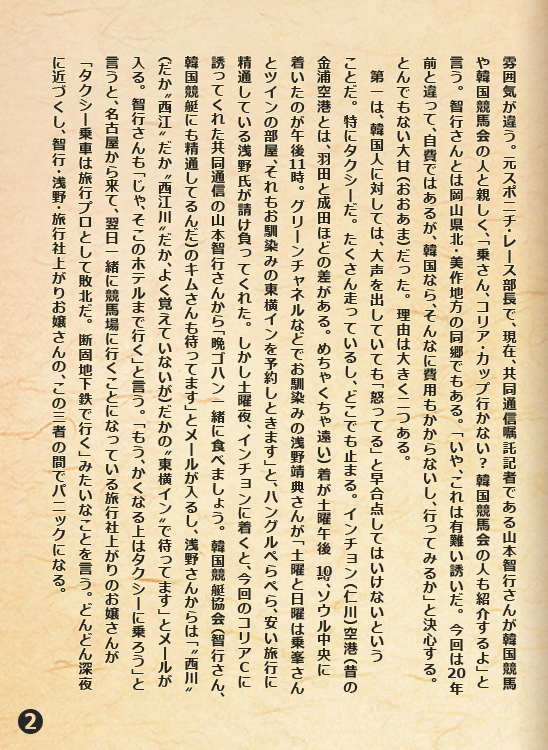 雰囲気が違う。元スポニチ・レース部長で、現在、共同通信嘱託記者である山本智行さんが韓国競馬
や韓国競馬会の人と親しく、「乗さん、コリア・カップ行かない?韓国競馬会の人も紹介するよ」と
言う。智行さんとは岡山県北・美作地方の同郷でもある。「いや、これは有難い誘いだ。今回は20年
前と違って、自費ではあるが、韓国なら、そんなに費用もかからないし、行ってみるか」と決心する。
とんでもない大甘(おおあま)だった。理由は大きく二つある。
第一は、韓国人に対しては、大声を出していても「怒ってる」と早合点してはいけないという
ことだ。特にタクシーだ。たくさん走っているし、どこでも止まる。インチョン(仁川)空港(昔の
金浦空港とは、羽田と成田ほどの差がある。めちゃくちゃ遠い)着が土曜午後10時、ソウル中央に
着いたのが午後11時。グリーンチャネルなどでお馴染みの浅野靖典さんが「土曜と日曜は乗峯さん
とツインの部屋、それもお馴染みの東横インを予約しときます」と、ハングルぺらぺら、安い旅行に
精通している浅野氏が請け負ってくれた。しかし土曜夜、インチョンに着くと、今回のコリアCに
誘ってくれた共同通信の山本智行さんから「晩ゴハン一緒に食べましょう。韓国競艇協会(智行さん、
韓国競艇にも精通してるんだ)のキムさんも待ってます」とメールが入るし、浅野さんからは「〝西川〟
(だか〝西江〟だか〝西江川〟だか、よく覚えていないが)だかの〝東横イン〟で待ってます」とメールが
入る。智行さんも「じゃ、そこのホテルまで行く」と言う。「もう、かくなる上はタクシーに乗ろう」と
言うと、名古屋から来て、翌日一緒に競馬場に行くことになっている旅行社上がりのお嬢さんが
「タクシー乗車は旅行プロとして敗北だ。断固地下鉄で行く」みたいなことを言う。どんどん深夜
に近づくし、智行・浅野・旅行社上がりお嬢さんの、この三者の間でパニックになる。
2